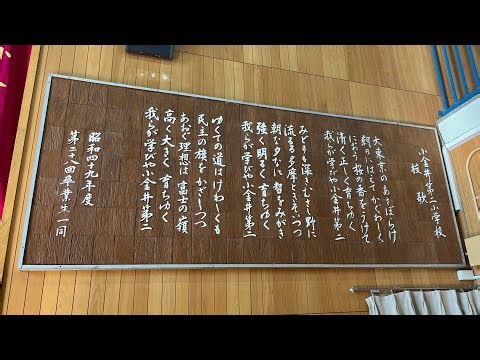 小金井第二小学校
校歌
大東京のあさぼらけ
朝日にはえてかぐわしく
におう桜の香をうけて
清く正しく育ちゆく
我らが学びや小金井第二
みどりも深きむさし野に
流るる多摩ときそいつつ
朝な夕なに智をみがき
強く明るく育ちゆく
我らが学びや小金井第二
ゆくての道はけわしくも
民主の旗をかざしつつ
あおぐ理想は富士の嶺
高く大きく育ちゆく
我らが学びや小金井第二
昭和四十九年度
第二十八回卒業生一同